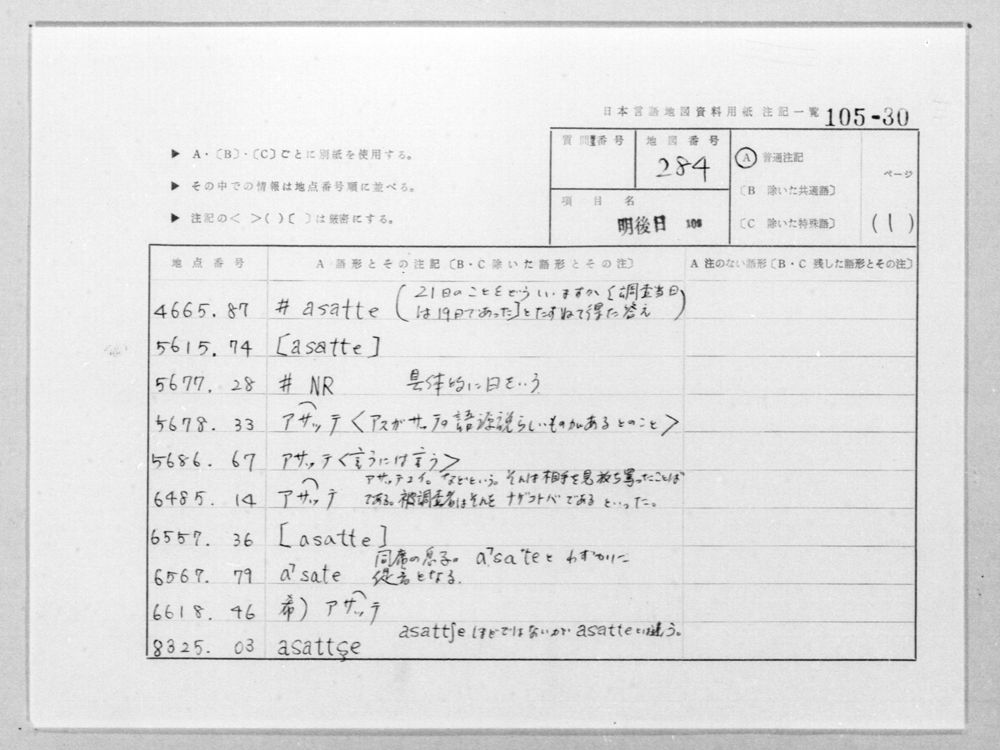 日本言語地図資料用紙 注記一覧 105-30
▶ A・〔B〕・〔C〕ごとに別紙を使用する。
▶ その中での情報は地点番号順に並べる。
▶ 注記の< >( )〔 〕は厳密にする。
質問番号
地図番号
284
項目名
明後日 105
Ⓐ 普通注記
〔B 除いた共通語〕
〔C 除いた特殊語〕
ページ
(1)
地点番号 A 語形とその注記〔B・C 除いた語形とその注〕 A 注のない語形〔B・C 残した語形とその注〕
4665. 87 # asatte (21日のことをどういいますか〔調査当日
は19日であった〕とたずねて得た答え)
5615. 74 [asatte]
5677. 28 # NR 具体的に日をいう
5678. 33 アサッテ<アスがサッテの語源説らしいものがあるとのこと>
5686. 67 アサッテ<言うには言う>
アサッテコイ。などという。それは相手を見放ち罵ったことば
6485. 14 アサッテ である。被調査者はそれを ナゲコトバ であるといった。
6557. 36 [asatte]
同席の息子。 とわずかに
6567. 79 a˥sate 促音となる。
6618. 46 希) アサッテ
asattʃe ほどではないが asatte とは違う。
8325. 03 asattşe